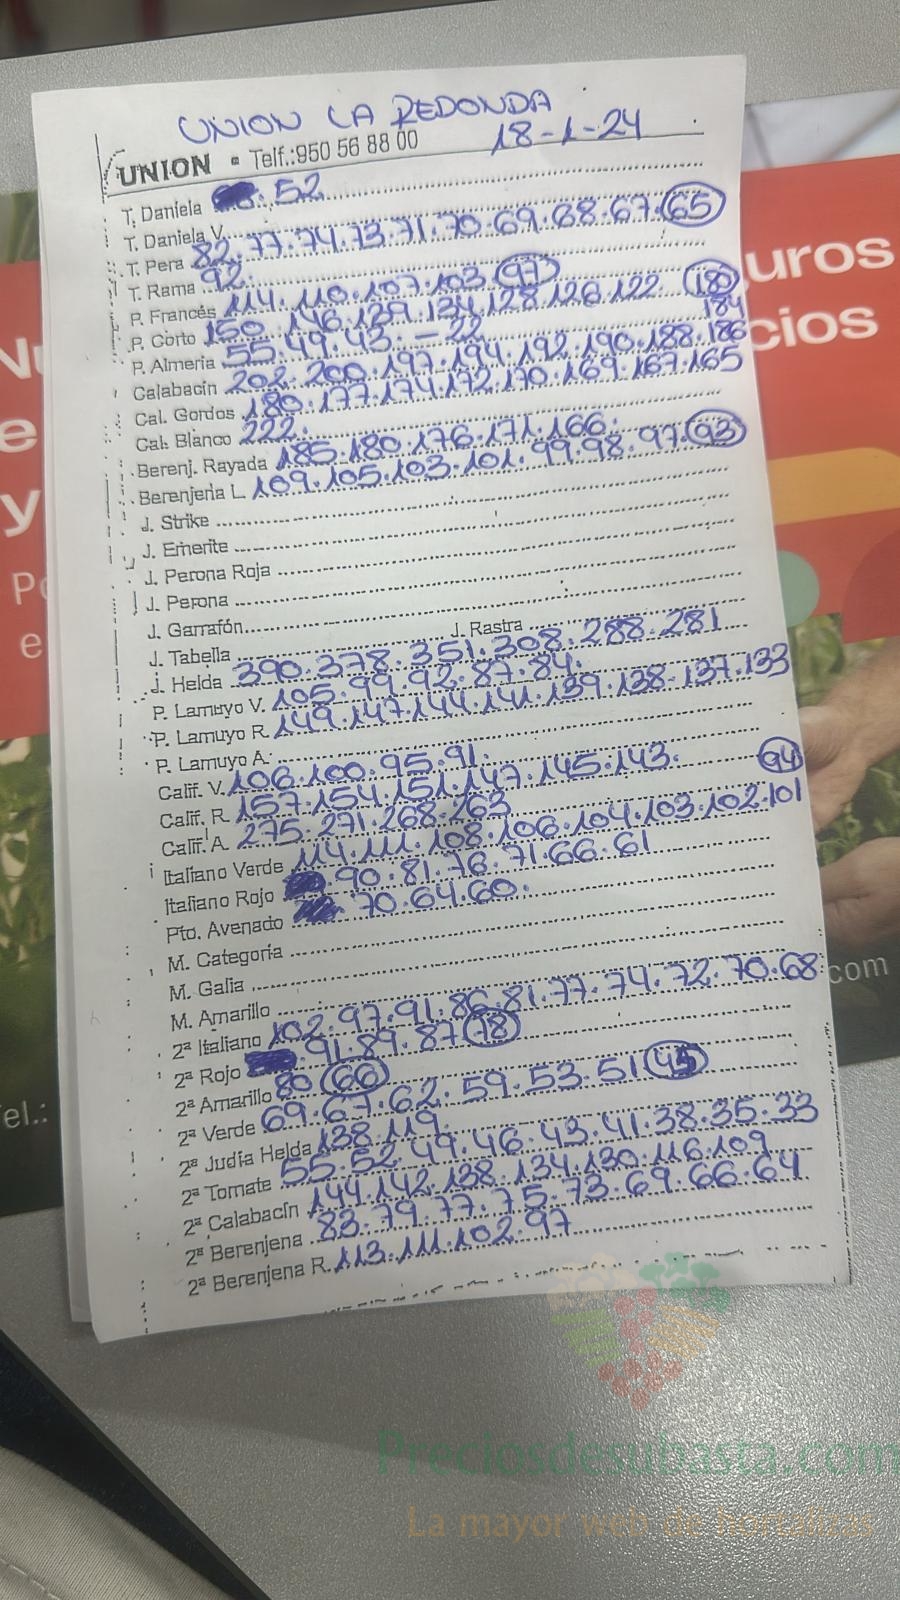 UNION LA REDONDA
18-1-24
UNION - Telf.:950 56 88 00
T. Daniela 52
T. Daniela V.
T. Pera 82.77.74.73.71.70.69.68.67.65
T. Rama 92.
P. Francés 114.110.107.103.97
P. Corto 150.146.139.134.128.126.122. 180
P. Almería 55.49.43.-22 184
Calabacín 202.200.197.194.192.190.188.186
Cal. Gordos 180.177.174.172.170.169.167.165
Cal. Blanco 222.
Berenj. Rayada 185.180.176.171.166.
Berenjena L. 109.105.103.101.99.98.97.93
J. Strike
J. Emerite
J. Perona Roja
J. Perona
J. Garrafón
J. Tabella J. Rastra
J. Helda 390.378.351.308.288.281
P. Lamuyo V. 105.99.92.87.84.
P. Lamuyo R. 149.147.144.141.139.138-137.133
P. Lamuyo A.
Calif. V. 106.100.95.91.
Calif. R. 157.154.151.147.145.143. 94
Calif. A. 275.271.268.263
Italiano Verde 114.111.108.106.104.103.102.101
Italiano Rojo 90.81.76.71.66.61
Pto. Avenado 70.64.60.
M. Categoría
M. Galia
M. Amarillo
2ª Italiano 102.97.91.86.81.77.74.72.70.68
2ª Rojo 91.89.87 78
2ª Amarillo 80 66
2ª Verde 69.67.62.59.53.51 45
2ª Judía Helda 138.119.
2ª Tomate 55.52.49.46.43.41.38.35.33
2ª Calabacín 144.142.138.134.130.116.109
2ª Berenjena 83.79.77.75.73.69.66.64
2ª Berenjena R. 113.111.102.97
uros
cios
com
Preciosdesubasta.com
La mayor web de hortalizas